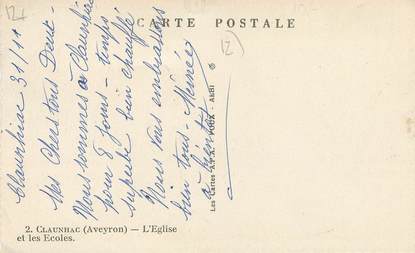 CARTE POSTALE
12
12
Claunhac 31/11
Mes Chers tous Deux -
Nous sommes à Claunhac
pour 8 jours - temps
superbe bien chauffé
Nous vous embrassons
bien tous -
à bientôt
Les Cartes A.P.A. - POUX - ALBI
2. CLAUNHAC (Aveyron) — L'Eglise
et les Ecoles.